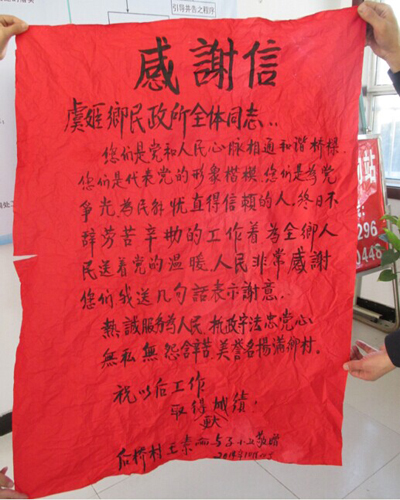 引导并告之程序
感謝信
虞姬鄉民政所全体同志：
您们是党和人民心脉相通和谐桥樑.
您们是代表党的形象楷模.您们是為党
争光為民解忧直得信頼的人.终日不
辞劳苦辛勤的工作着為全鄉人
民送着党的温暖.人民非常感謝
您们我送几句話表示謝意.
熱誠服務為人民 执政守法忠党心
無私無怨含辛苦 美誉名揚滿鄉村.
祝以后工作
取得成績.
后桥村王素
站
296
0448